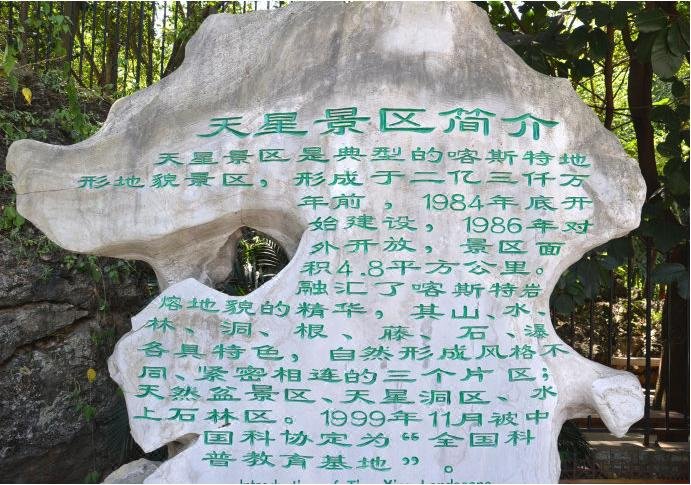 天星景区简介
天星景区是典型的喀斯特地
形地貌景区，形成于二亿三仟万
年前，1984年底开
始建设，1986年对
外开放，景区面
积4.8平方公里。
融汇了喀斯特岩
熔地貌的精华，其山、水、
林、洞、根、藤、石、瀑
各具特色，自然形成风格不
同、紧密相连的三个片区；
天然盆景区、天星洞区、水
上石林区。1999年11月被中
国科协定为“全国科
普教育基地”。